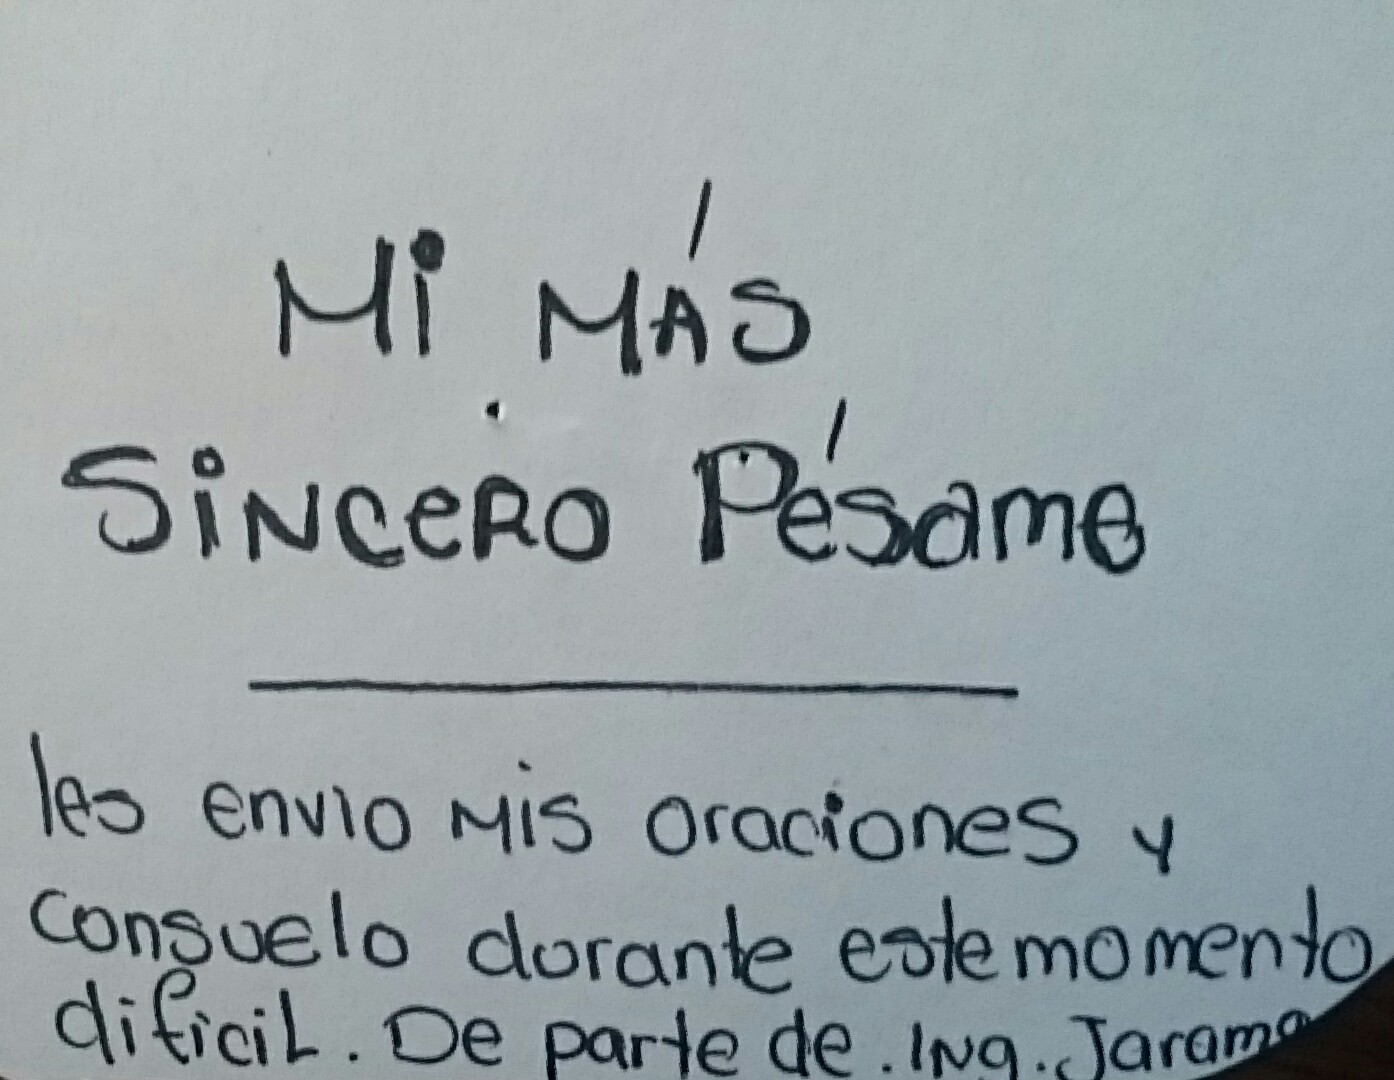 Mi MÁS
SiNceRo Pésame
les envio Mis oraciones y
consuelo durante este momento
dificil. De parte de. Ing. Jarama